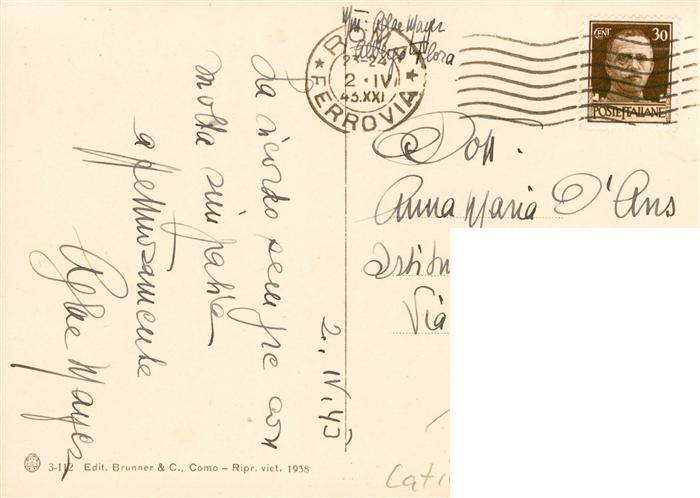 Mayer
Albergo Flora
ROMA
21-24
2·IV
43.XXI
FERROVIA
CENT 30
POSTE ITALIANE
Anna Maria D'Ans
Via
La ricordo sempre con
molta simpatia
affettuosamente
Mayer
2. IV. 43
3-112 Edit. Brunner & C., Como - Ripr. viet. 1938